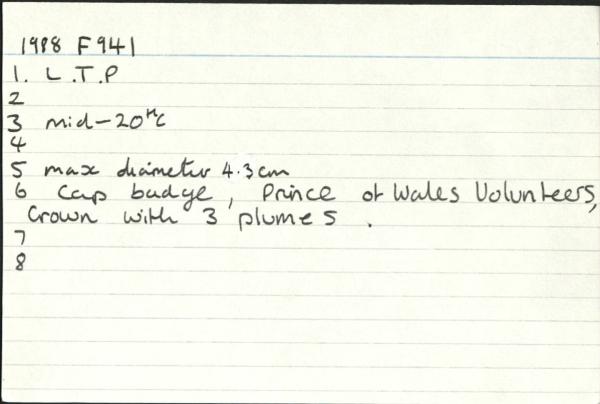 1988 F941
1. L.T.P
2
3 mid-20thC
4
5 max diameter 4.3cm
6 Cap badge, Prince of Wales Volunteers,
Crown with 3 plumes.
7
8